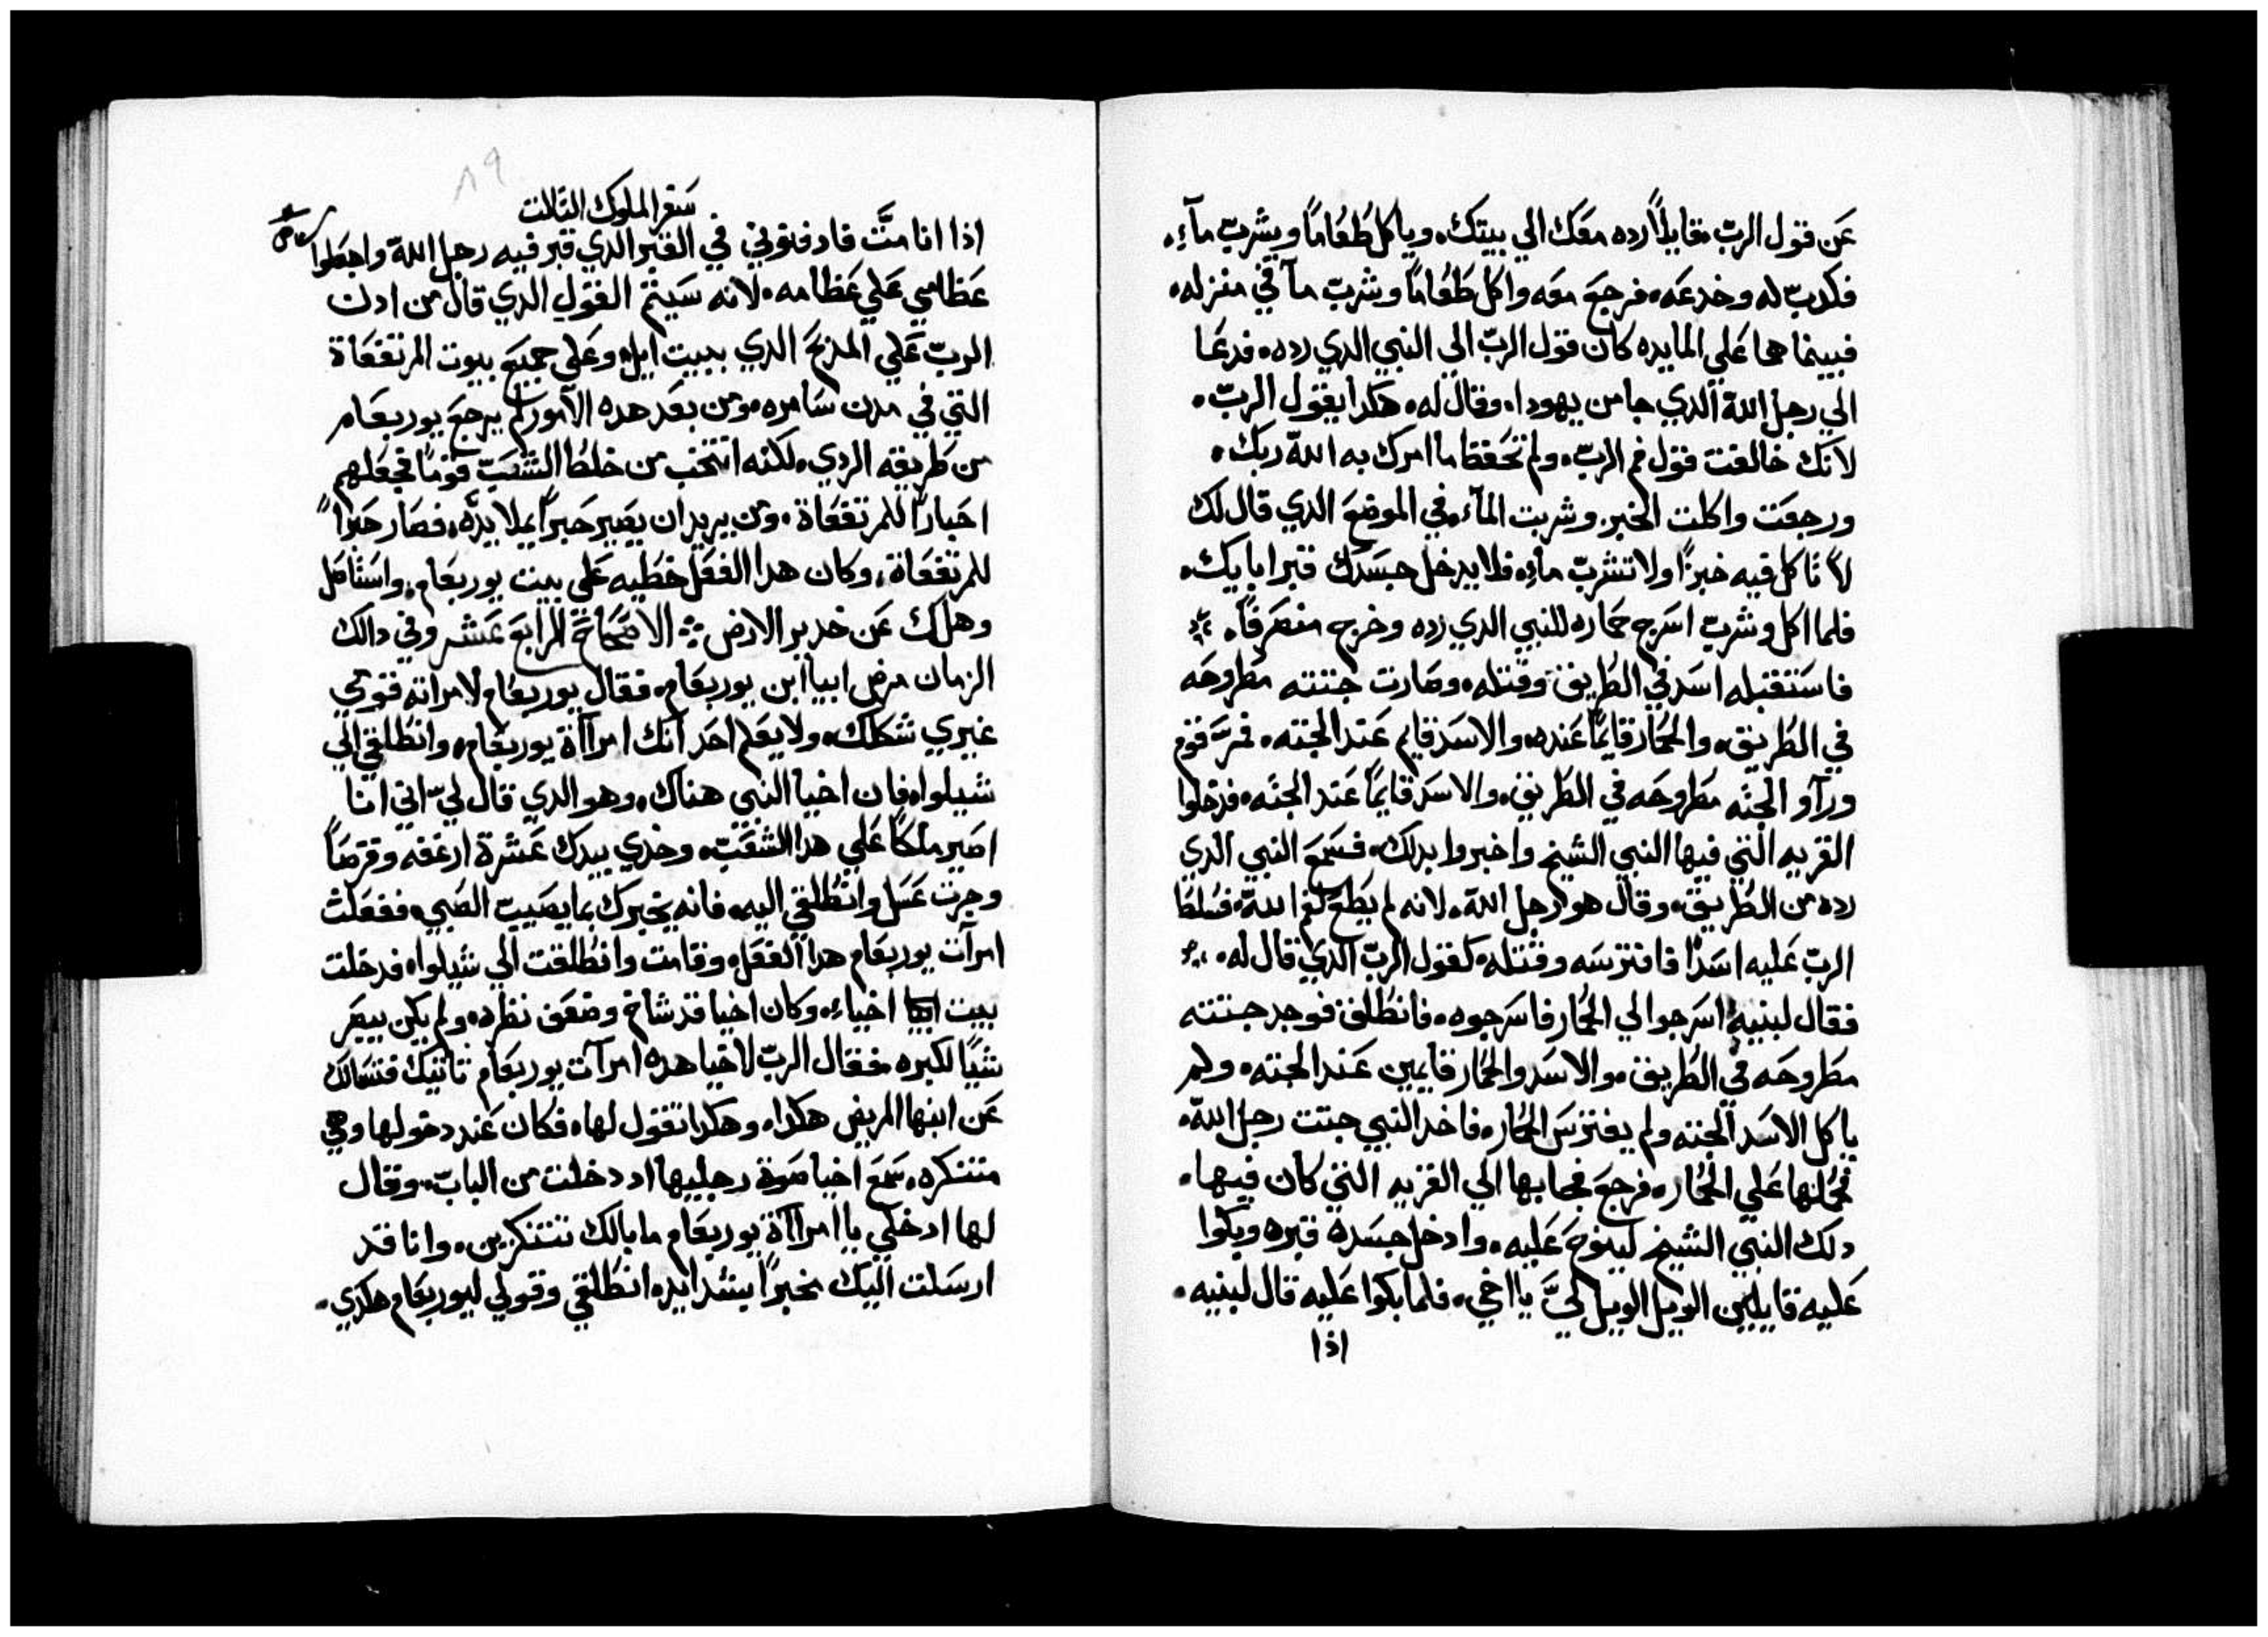 عن قول الرب قايلاً رده معك الي بيتك. وياكل طعاماً ويشرب مآء.
فكدب له وخدعه. فرجع معه واكل طعاماً وشرب مآ في منزله.
فبينما هما علي المايده كان قول الرب الي النبي الدي رده. فدعا
الي رجل الله الدي جا من يهودا. وقال له. هكدا يقول الرب.
لانك خالفت قول فم الرب. ولم تحفظ ما امرك به الله ربك.
ورجعت واكلت الخبز. وشربت المآء. في الموضع الدي قال لك
لا تاكل فيه خبزاً ولا تشرب ماء. فلا يدخل جسدك قبر ابايك.
فلما اكل وشرب اسرج حماره للنبي الدي رده وخرج منصرفاً.
فاستقبله اسد في الطريق وقتله. وصارت جتته مطروحه
في الطريق. والحمار قايماً عنده. والاسد قايم عند الجته. فمرَّ قوم
ورآو الجته مطروحه في الطريق. والاسد قايماً عند الجته. فدخلوا
القريه التي فيها النبي الشيخ واخبروا بدلك. فسمع النبي الدي
رده من الطريق. وقال هو رجل الله. لانه لم يطع لفم الله. فسلط
الرب عليه اسداً فافترسه وقتله. كقول الرب الدي قال له.
فقال لبنيه اسرجوا لي الحمار فاسرجوه. فانطلق فوجد جتته
مطروحه في الطريق. والاسد والحمار قايمين عند الجته. ولم
ياكل الاسد الجته ولم يفترس الحمار. فاخد النبي جتت رجل الله.
فحملها علي الحمار. فرجع فجا بها الي القريه التي كان فيها.
دلك النبي الشيخ لينوح عليه. وادخل جسده قبره وبكوا
عليه قايلين الويل الويل ليَّ يا اخي. فلما بكوا عليه قال لبنيه.
اذا
٨٩
سفر الملوك التالت
اذا انا متَّ فادفنوني في القبر الدي قبر فيه رجل الله واجعلوا
عظامي علي عظامه. لانه سيتم القول الدي قال من ادن
الرب علي المدبح الدي ببيت ايل. وعلي جميع بيوت المرتفعاة
التي في مدن سامره. ومن بعد هده الامور لم يرجع يوربعام
من طريقه الردي. لكنه انتخب من خلط الشعب قوماً فجعلهم
احباراً للمرتفعاة. ومن يريد ان يصير حبراً يملا يده. فصار حبراً
للمرتفعاة. وكان هدا الفعل خطيه علي بيت يوربعام. واستاصل
وهلك عن خدير الارض الاصحاح الرابع عشر وفي دالك
الزمان مرض ابيا ابن يوربعام. فقال يوربعام لامراته قومي
غيري شكلك. ولا يعلم احد انك امرااة يوربعام. وانطلقي الي
شيلوا. فان اخيا النبي هناك. وهو الدي قال لي اني انا
اصير ملكاً علي هدا الشعب. وخدي بيدك عشرة ارغفه وقرصاً
وجرت عسل وانطلقي اليه. فانه يخبرك بما يصيب الصبي. ففعلت
امرآت يوربعام هدا الفعل. وقامت وانطلقت الي شيلوا. فدخلت
بيت اخياء. وكان اخيا قد شاخ وضعف نظره. ولم يكن يبصر
شياً لكبره. فقال الرب لاخيا هده امرآت يوربعام تاتيك فتسالك
عن ابنها المريض هكدا. وهكدا تقول لها. فكان عند دخولها وهي
متنكره. سمع اخيا صوة رجليها اد دخلت من الباب. وقال
لها ادخلي يا امرااة يوربعام ما بالك تتنكرين. وانا قد
ارسلت اليك بخبراً شدايده. انطلقي وقولي ليوربعام هكدي.